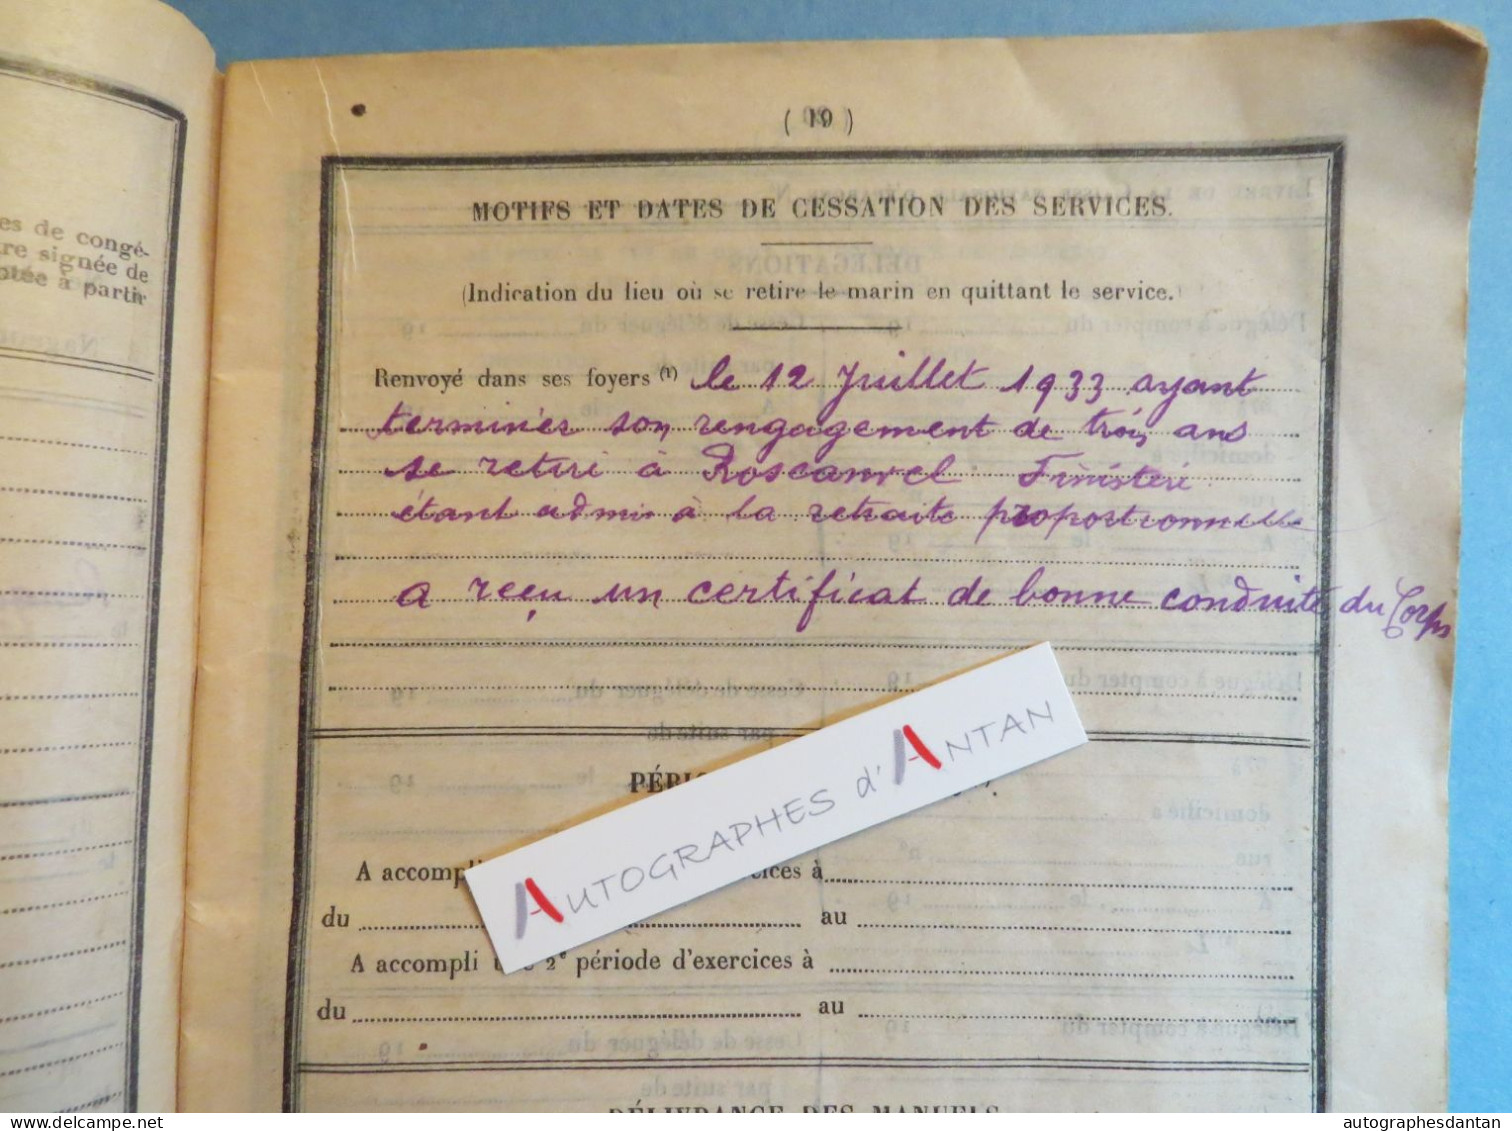 es de congé-
re signée de
ptée à partir
( 19 )
MOTIFS ET DATES DE CESSATION DES SERVICES.
(Indication du lieu où se retire le marin en quittant le service.)
Renvoyé dans ses foyers (1) le 12 Juillet 1933 ayant
terminés son rengagement de trois ans
se retire à Roscanvel Finistère
étant admis à la retraite proportionnelle
a reçu un certificat de bonne conduite du Corps
PÉRIO
A accompli
cices à
du
au
A accompli
2e période d'exercices à
du
au
DÉLIVRANCE DES MANUELS
AUTOGRAPHES d'ANTAN
delcampe.net
autographesdantan